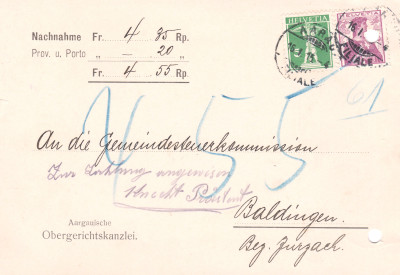 HELVETIA
HELVETIA
AARAU
FILIALE
FILIALE
Nachnahme Fr. 4 35 Rp.
Prov. u. Porto „ — 20 „
Fr. 4 55 Rp.
4 55
61
An die Gemeindesteuerkommission
Zur Zahlung angewiesen
Knecht Präsident
Baldingen.
Bez. Zurzach.
Aargauische
Obergerichtskanzlei.